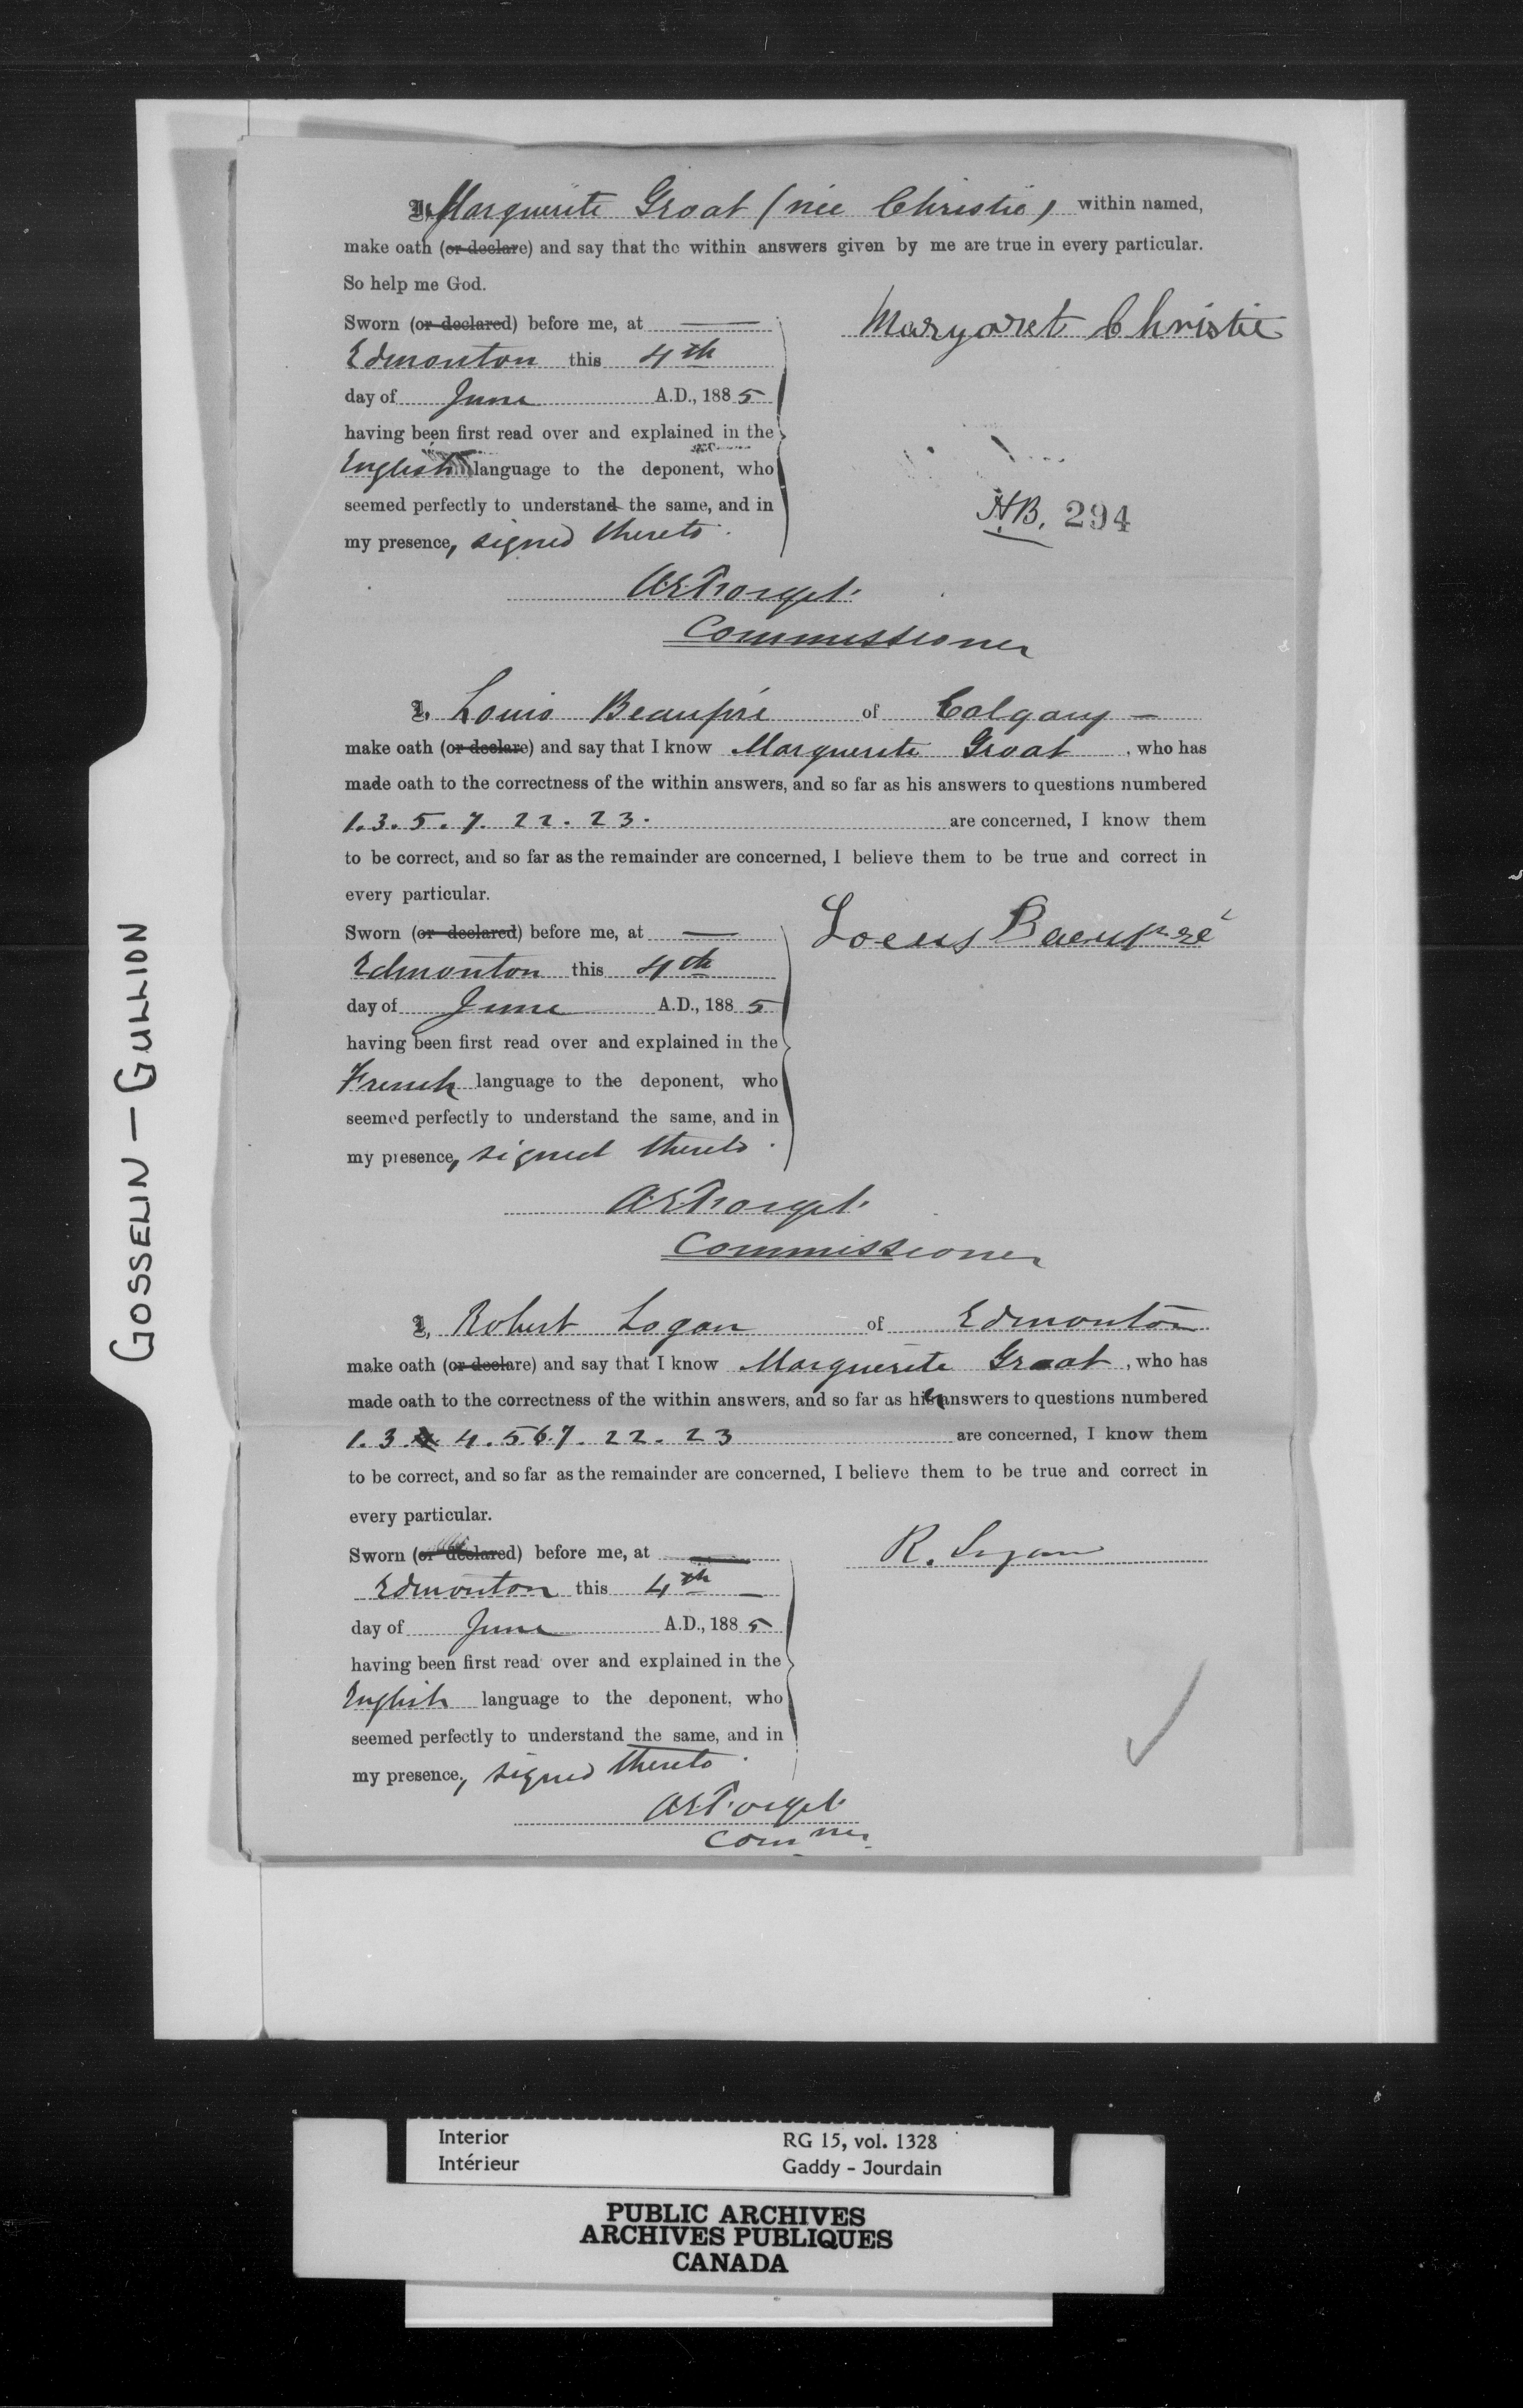 I, Marguerite Groat (née Christie) within named,
make oath (or declare) and say that the within answers given by me are true in every particular.
So help me God.
Sworn (or declared) before me, at
Edmonton this 4th
day of June A.D., 1885
having been first read over and explained in the
English language to the deponent, who
seemed perfectly to understand the same, and in
my presence, signed thereto.
Margaret Christie
H.B. 294
A.E. Forget.
Commissioner
I, Louis Beaupré of Calgary —
make oath (or declare) and say that I know Marguerite Groat, who has
made oath to the correctness of the within answers, and so far as his answers to questions numbered
1. 3. 5. 7. 22. 23. are concerned, I know them
to be correct, and so far as the remainder are concerned, I believe them to be true and correct in
every particular.
Sworn (or declared) before me, at
Edmonton this 4th
day of June A.D., 1885
having been first read over and explained in the
French language to the deponent, who
seemed perfectly to understand the same, and in
my presence, signed thereto.
Louis Beaupré
A.E. Forget.
Commissioner
I, Robert Logan of Edmonton
make oath (or declare) and say that I know Marguerite Groat, who has
made oath to the correctness of the within answers, and so far as her answers to questions numbered
1. 3. 4. 5. 6. 7. 22. 23 are concerned, I know them
to be correct, and so far as the remainder are concerned, I believe them to be true and correct in
every particular.
Sworn (or declared) before me, at
Edmonton this 4th
day of June A.D., 1885
having been first read over and explained in the
English language to the deponent, who
seemed perfectly to understand the same, and in
my presence, signed thereto.
R. Logan
A.E. Forget.
Comm<sup>ner</sup>.
GOSSELIN — GULLION
Interior RG 15, vol. 1328
Intérieur Gaddy - Jourdain
PUBLIC ARCHIVES
ARCHIVES PUBLIQUES
CANADA